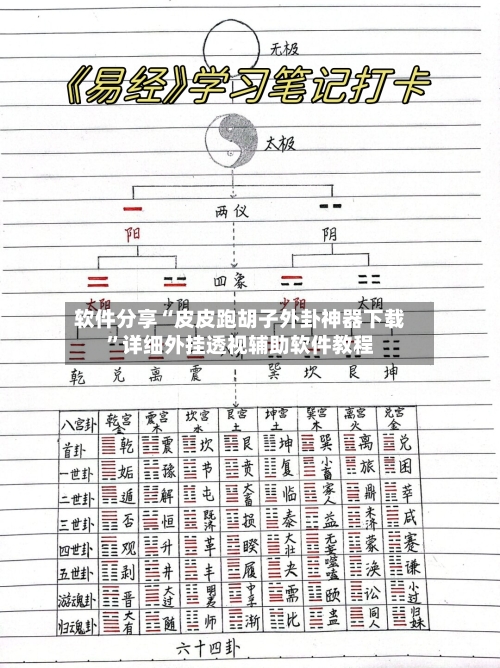 无极
《易经》学习笔记打卡
太极
两仪
阳 阴
四象
太阳 少阴 少阳 太阴
软件分享“皮皮跑胡子外卦神器下载
”详细外挂透视辅助软件教程
乾 兑 离 震 巽 坎 艮 坤
八宫卦 乾宫金 震宫木 坎宫水 艮宫土 坤宫土 巽宫木 离宫火 兑宫金
首卦 乾 震 坎 艮 坤 巽 离 兑
一世卦 姤 豫 节 贲 复 小畜 旅 困
二世卦 遁 解 屯 大畜 临 家人 鼎 萃
三世卦 否 恒 既济 损 泰 益 未济 咸
四世卦 观 升 革 睽 大壮 无妄 蒙 蹇
五世卦 剥 井 丰 履 夬 噬嗑 涣 谦
游魂卦 晋 大过 明夷 中孚 需 颐 讼 小过
归魂卦 大有 随 师 渐 比 蛊 同人 归妹
六十四卦